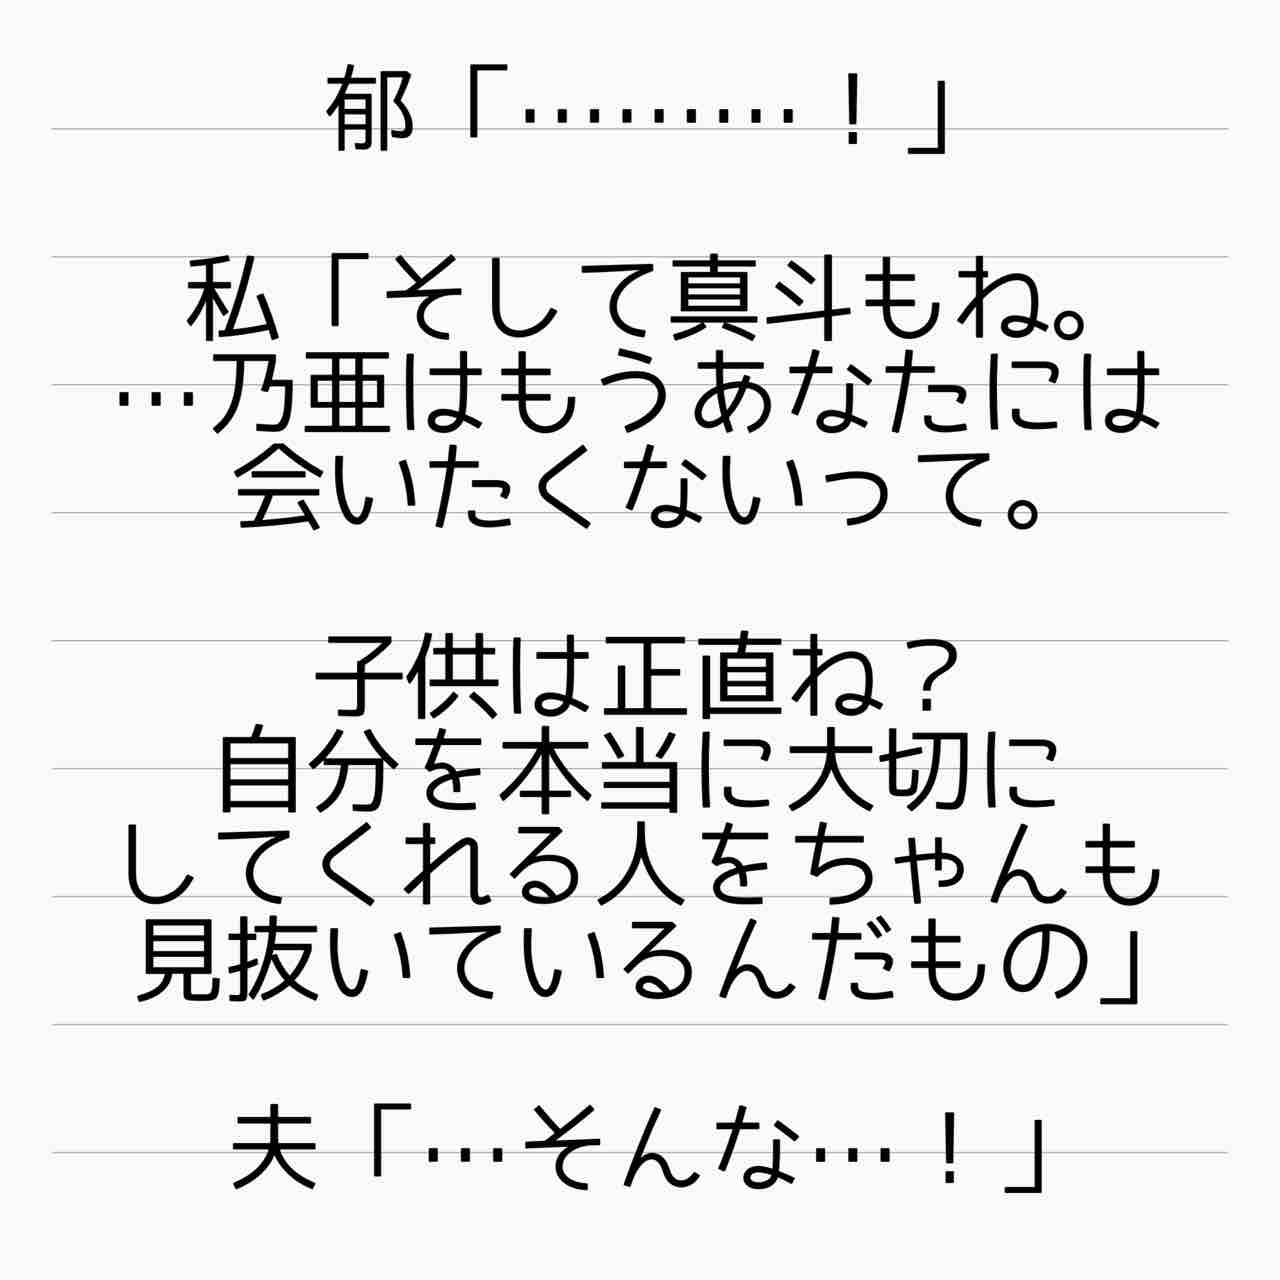 郁「………！」
私「そして真斗もね。
…乃亜はもうあなたには
会いたくないって。
子供は正直ね？
自分を本当に大切に
してくれる人をちゃんも
見抜いているんだもの」
夫「…そんな…！」